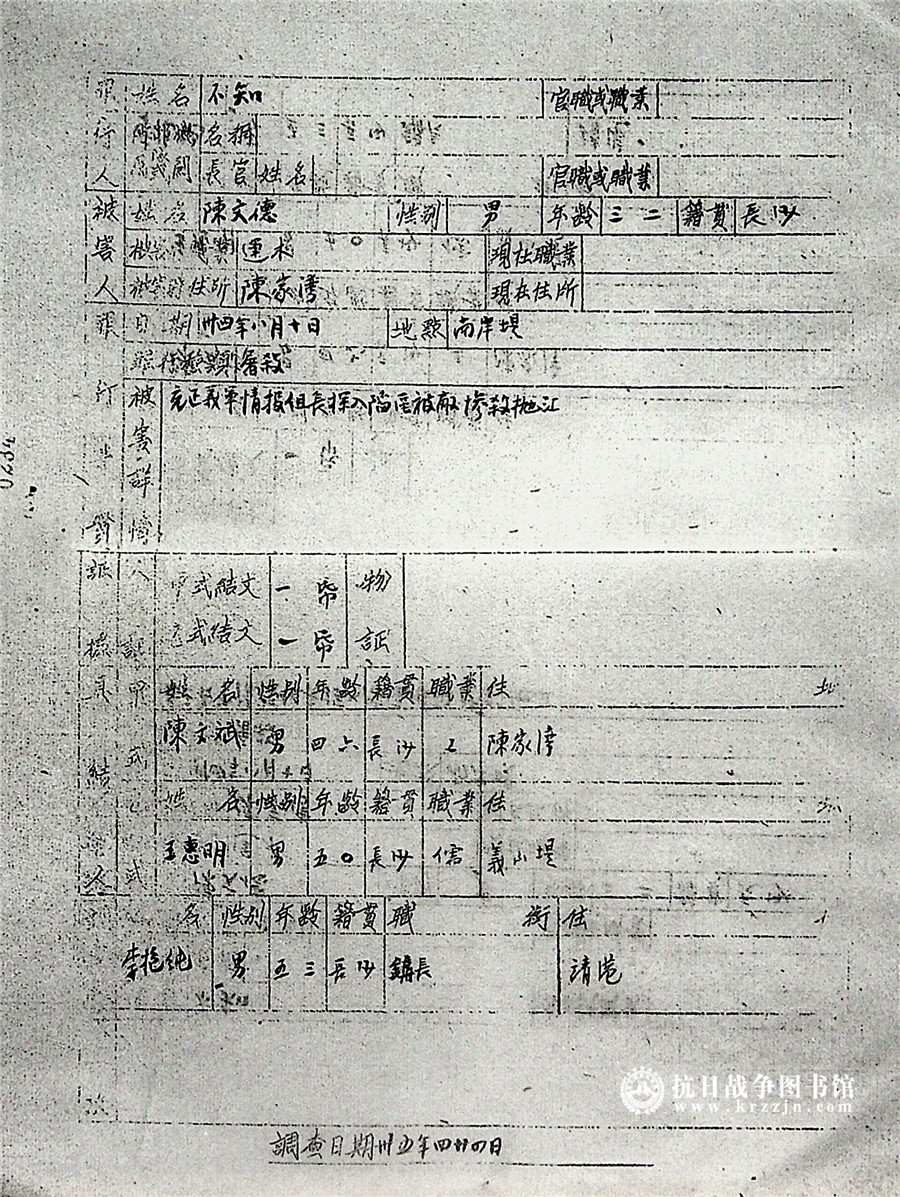 罪行人 姓名 不知 官職或職業
名稱
長官 姓名 官職或職業
被害人 姓名 陳文德 性别 男 年齡 三二 籍貫 長沙
現在職業
住所 陳家灣 現在住所
日期 卅四年八月十日 地點 南岸垻
罪行種類 屠殺
被害詳情 充正義軍情报组長探入陷區被敵慘殺抛江
0234
証據 人証 甲式結文 一帋 物証
乙式結文 一帋
具結人 甲式 姓名 性别 年齡 籍貫 職業 住址
陳文斌 男 四六 長沙 工 陳家湾
乙式 姓名 性别 年齡 籍貫 職業 住
王惠明 男 五〇 長沙 儒 義山堤
名 性别 年齡 籍貫 職銜 住
李 純 男 五三 長沙 鎮長 靖港
調查日期卅五年四廿四日
抗日战争图书馆
www.krzzjn.com